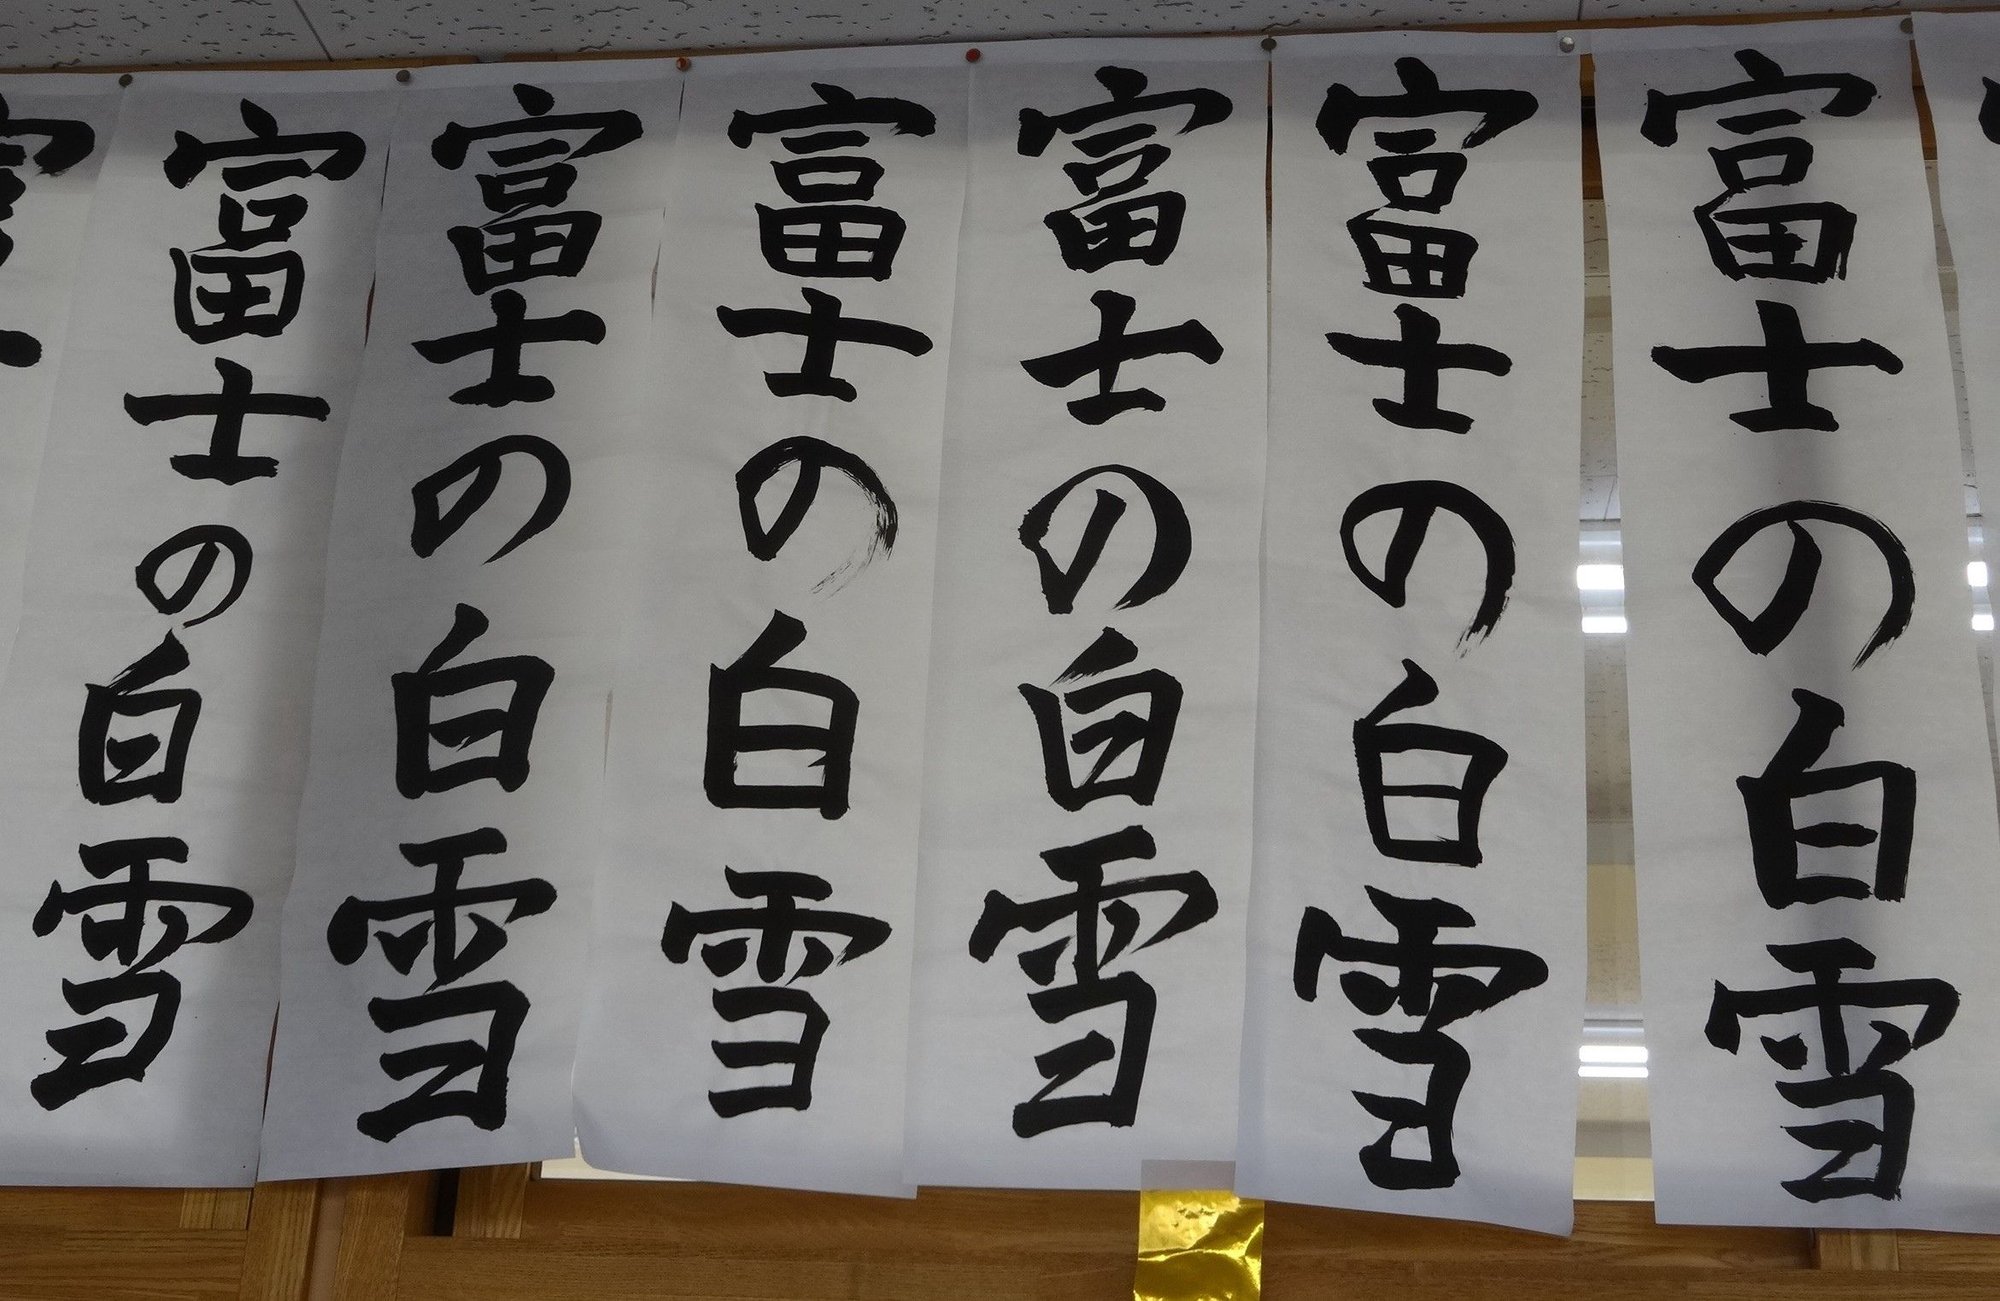 富士の白雪
富士の白雪
富士の白雪
富士の白雪
富士の白雪
富士の白雪